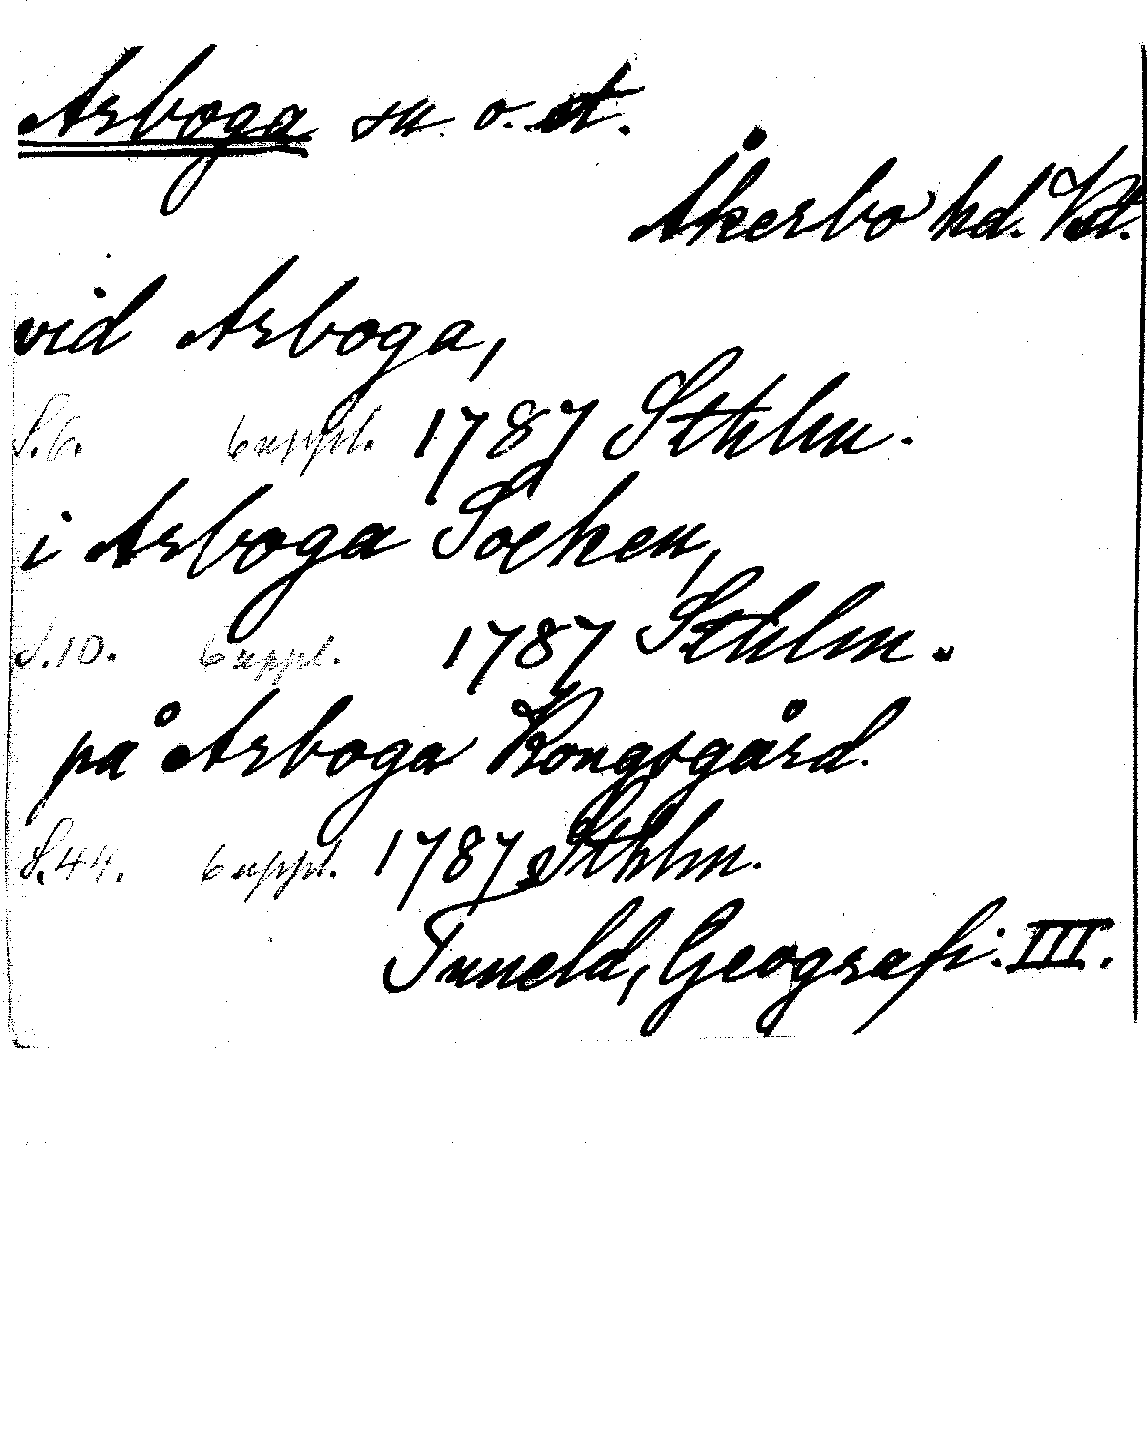 Arboga sn. o. st.
Åkerbo hd. Vstl.
vid Arboga,
S.6. 6 uppl. 1787 Sthlm.
i Arboga Socken,
S.10. 6 uppl. 1787 Sthlm.
på Arboga Kongsgård.
S.44. 6 uppl. 1787 Sthlm.
Tuneld, Geografi. III.